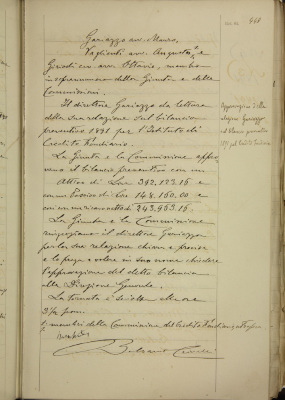 448
Gariazzo avv. Mauro,
Vaglienti avv. Augusto, e
Giriodi cav. avv. Ottavio, membro
in soprannumero della Giunta e delle
Commissioni.
Il direttore Gariazzo da lettura
della sua relazione sul bilancio
preventivo 1891 per l'Istituto di
Credito Fondiario.
La Giunta e la Commissione appro-
vano il bilancio preventivo con un
Attivo di Lire 392,123.16 e
con un Passivo di Lire 148,160.00 e
con un residuo attivo di 243,963.16.
La Giunta e la Commissione
ringraziano il direttore Gariazzo
per la sua relazione chiara e precisa
e lo prega a volere in suo nome chiedere
l'approvazione del detto bilancio
alla Direzione Generale.
La tornata è sciolta alle ore
3 1/2 pom.
i membri della Commissione del Credito Fondiario
Approvazione della
relazione Gariazzo
sul bilancio preventivo
1891 pel Credito Fondiario